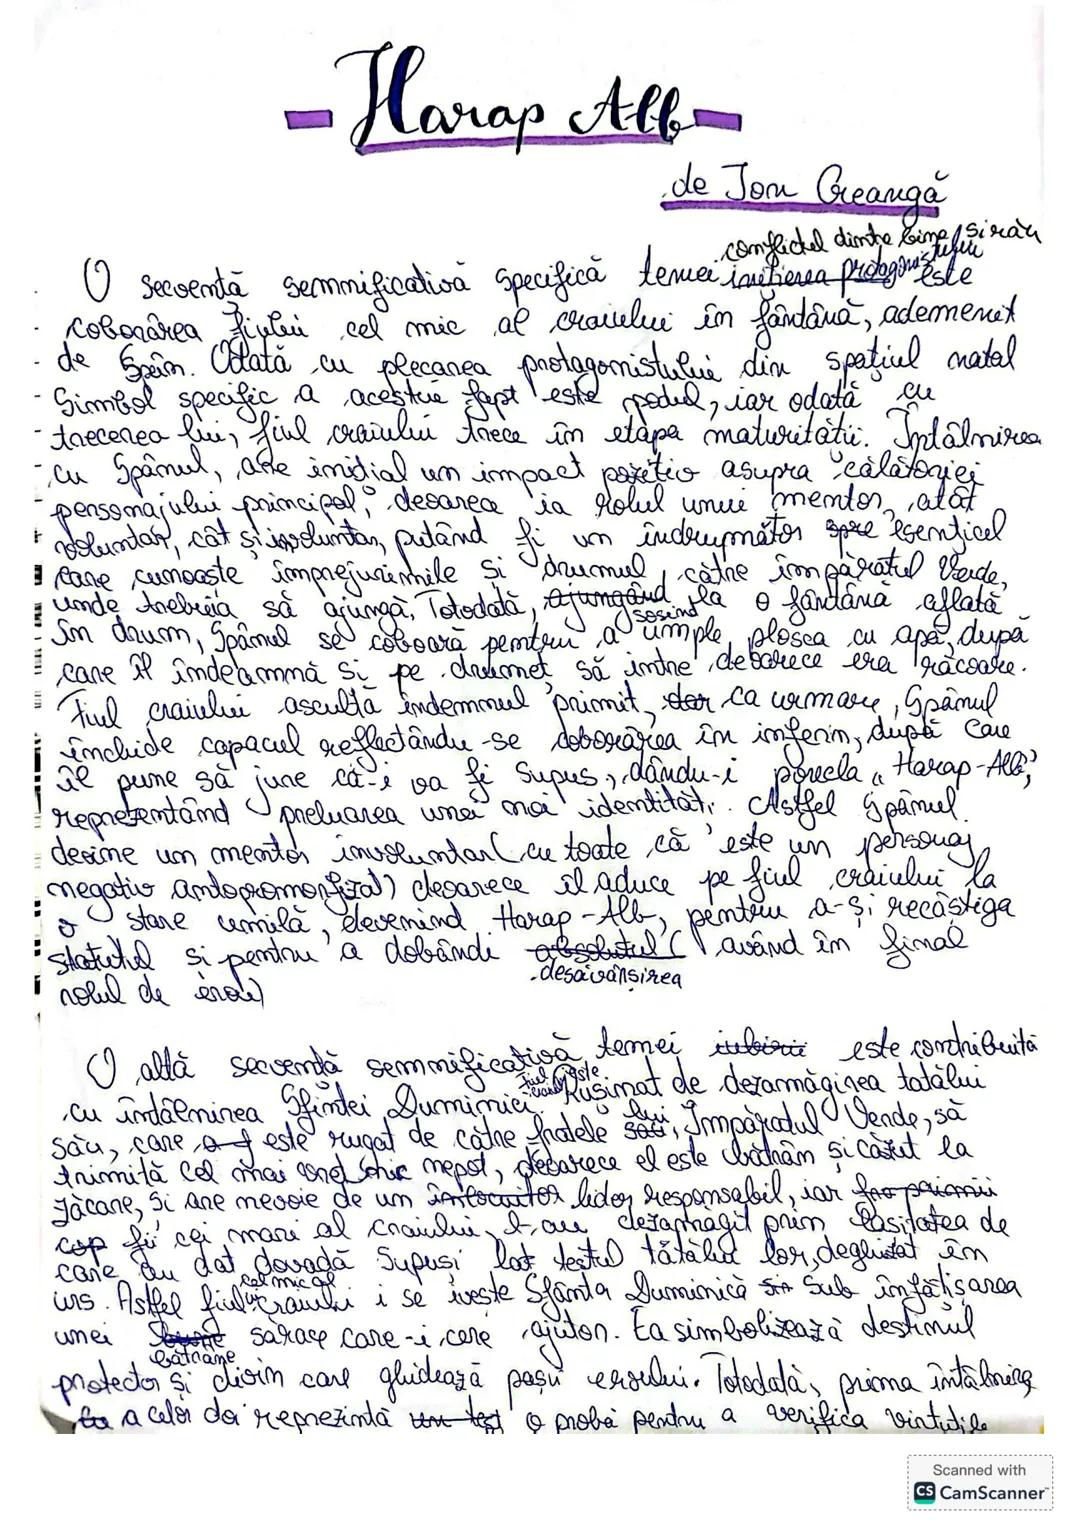 Harap Alb
de Ion Creangă
conflictul dintre bine și rău
O secvență semnificativă specifică temei inițierea protagonistului este
coborârea fiului cel mic al craiului în fântână, ademenit
de Spân. Odată cu plecarea protagonistului din spațiul natal
Simbol specific a acestui fapt este podul, iar odată cu
trecerea lui, fiul craiului trece în etapa maturității. Întâlnirea
cu Spânul, are inițial un impact pozitiv asupra călătoriei
personajului principal, deoarece ia rolul unui mentor, atât
voluntar, cât și involuntar, putând fi un îndrumător spre esențial
care cunoaște împrejurimile și drumul către împăratul Verde,
unde trebuia să ajungă. Totodată, ajungând la o fântână aflată
sosind
în drum, Spânul se coboară pentru a umple plosca cu apă, după
care îl îndeamnă și pe drumeț să intre deoarece era răcoare.
Fiul craiului ascultă îndemnul primit, dar ca urmare, Spânul
închide capacul reflectându-se coborârea în infern, după care
îl pune să jure că-i va fi supus, dându-i porecla „Harap-Alb",
reprezentând preluarea unei noi identități. Astfel Spânul
devine un mentor involuntar (cu toate că este un personaj
negativ antopromorfizat) deoarece îl aduce pe fiul craiului la
o stare umilă, devenind Harap-Alb, pentru a-și recâștiga
statutul și pentru a dobândi absolutul (având în final
desăvârșirea
rolul de erou)
O altă secvență semnificativă temei iubirii este contribuită
cu întâlnirea Sfintei Duminici. Fiul craiului este Rușinat de dezamăgirea tatălui
său, care a f este rugat de către fratele său lui, Împăratul Verde, să
trimită cel mai nepot, deoarece el este bătrân și căzut la
zăcare, și are nevoie de un înlocuitor lider responsabil, iar
cop fii cei mari al craiului, l-au dezamăgit prin lașitatea de
care au dat dovadă Supuși testul tatălui lor, deghizat în
urs. Astfel fiul cel mic al craiului i se ivește Sfânta Duminică Sub înfățișarea
unei bune sărace care-i cere ajutor. Ea simbolizează destinul
bătrâne
protector și divin care ghidează pașii eroului. Totodată, prima întâlnire
a celor doi reprezintă un test o probă pentru a verifica virtuțile
Scanned with
CS CamScanner